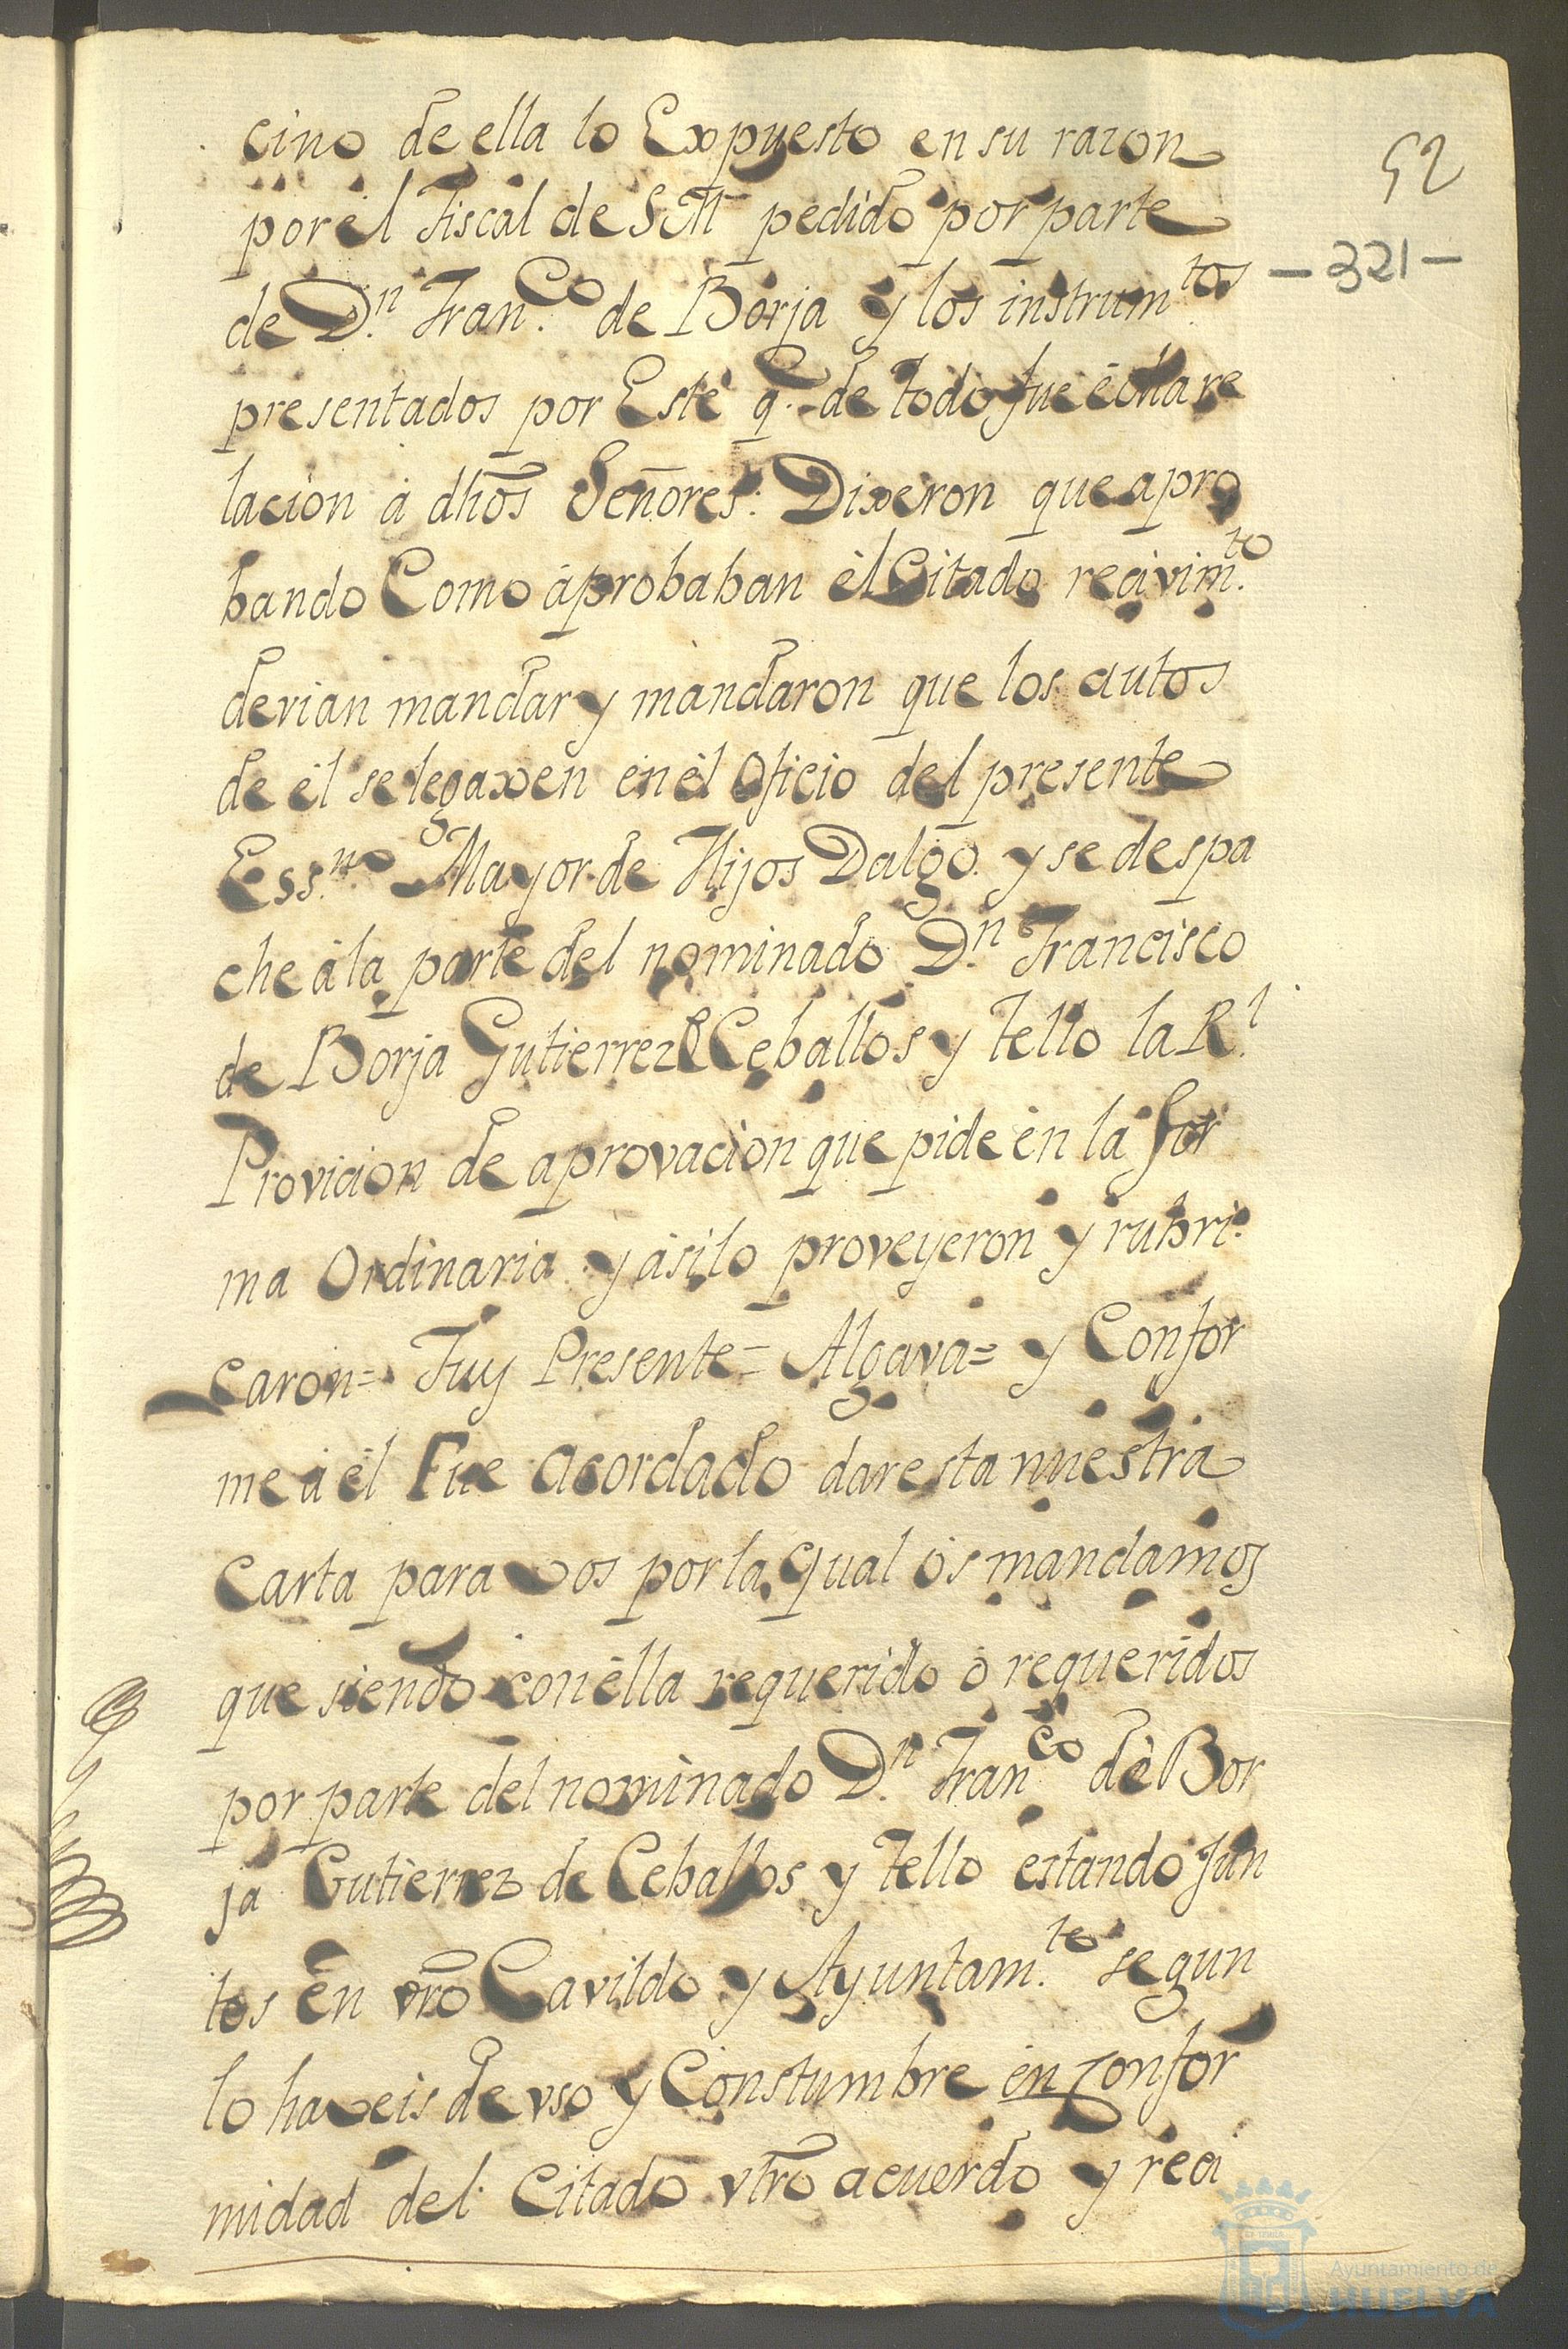 cino de ella lo Expuesto en su razon
52
por èl Fiscal de S M pedido por parte
-321-
de D.n Fran.co de Borja y los instrum.tos
presentados por Este q.e de todo fue êcha re
lacion â dhos Señores: Dixeron que apro
bando Como âprobaban èl Citado recivim.to
devian mandar y mandaron que los autos
de êl se legaxen en èl Oficio del presente
Ess.no Mayor de Hijos Dalgo y se despa
che â la parte del nominado D.n Francisco
de Borja Gutierrez Ceballos y Tello la R.l
Provicion de aprovacion que pide ên la for
ma Ordinaria y âsi lo proveyeron y rubri
caron= Fuy Presente= Algava= y Confor
me â êl Fue acordado dar esta nuestra
Carta para vos por la qual ôs mandamos
que siendo con êlla requerido ô requeridos
por parte del nominado D.n Fran.co de Bor
ja Gutierrez de Ceballos y Tello estando Jun
tos ên vro Cavildo y Ayuntam.to segun
lo haveis de vso y Constumbre en confor
midad del Citado vtro acuerdo y reci
Ayuntamiento de
HUELVA